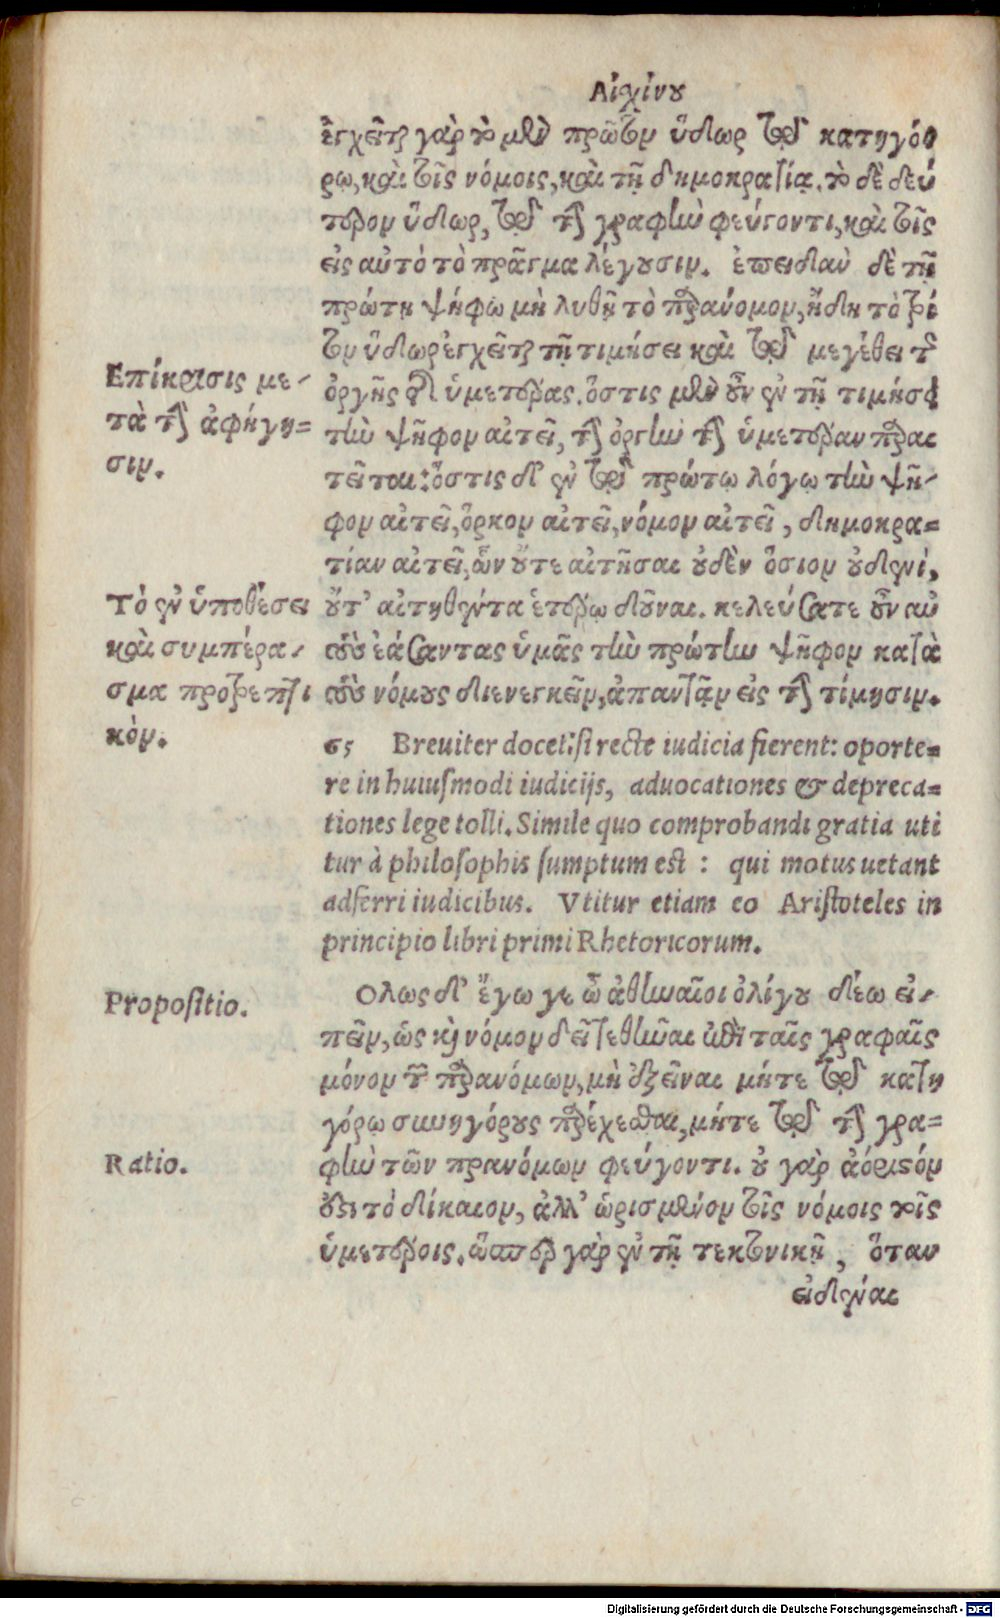 Αἰχίνου
ἐγχεῖται γὰρ τὸ μὲν πρῶτον ὕδωρ τῷ κατηγό
ρῳ, καὶ τοῖς νόμοις, καὶ τῇ δημοκρατίᾳ. τὸ δὲ δεύ
τερον ὕδωρ, τῷ τὴν γραφὴν φεύγοντι, καὶ τοῖς
εἰς αὐτὸ τὸ πρᾶγμα λέγουσιν. ἐπειδὰν δὲ τῇ
πρώτῃ ψήφῳ μὴ λυθῇ τὸ παράνομον, ἤδη τὸ τρί
τον ὕδωρ ἐγχεῖται τῇ τιμήσει καὶ τῷ μεγέθει τῆς
ὀργῆς τῆς ὑμετέρας. ὅστις μὲν οὖν ἐν τῇ τιμήσει
τὴν ψῆφον αἰτεῖ, τὴν ὀργὴν τὴν ὑμετέραν παραι
τεῖται: ὅστις δ' ἐν τῷ πρώτῳ λόγῳ τὴν ψῆ-
φον αἰτεῖ, ὅρκον αἰτεῖ, νόμον αἰτεῖ, δημοκρα=
τίαν αἰτεῖ, ὧν οὔτε αἰτῆσαι οὐδὲν ὅσιον οὐδενί,
οὔτ' αἰτηθέντα ἑτέρῳ δοῦναι. κελεύσατε οὖν αὐ
τοὺς ἐάσαντας ὑμᾶς τὴν πρώτην ψῆφον κατὰ
τοὺς νόμους διενεγκεῖν, ἀπαντᾷν εἰς τὴν τίμησιν.
Επίκρισις με-
τὰ τὴν ἀφήγη=
σιν.
Τὸ ἐν ὑποθέσει
καὶ συμπέρα-
σμα προτρεπτι
κὸν.
65 Breuiter docet: si recte iudicia fierent: oporte=
re in huiusmodi iudicijs, aduocationes & depreca=
tiones lege tolli. Simile quo comprobandi gratia uti
tur à philosophis sumptum est : qui motus uetant
adferri iudicibus. Vtitur etiam eo Aristoteles in
principio libri primi Rhetoricorum.
Propositio.
Ολως δ' ἔγωγε ὦ ἀθηναῖοι ὀλίγου δέω εἰ-
πεῖν, ὡς καὶ νόμον δεῖ τεθῆναι ἐπὶ ταῖς γραφαῖς
μόνον τῶν παρανόμων, μὴ ἐξεῖναι μήτε τῷ κατη
γόρῳ συνηγόρους παρέχεσθαι, μήτε τῷ τὴν γρα=
φὴν τῶν πρανόμων φεύγοντι. οὐ γὰρ ἀόριστόν
ἐστι τὸ δίκαιον, ἀλλ' ὡρισμένον τοῖς νόμοις τοῖς
ὑμετέροις. ὥσπερ γὰρ ἐν τῇ τεκτονικῇ, ὅταν
εἰδέναι
Ratio.
Digitalisierung gefördert durch die Deutsche Forschungsgemeinschaft - DFG